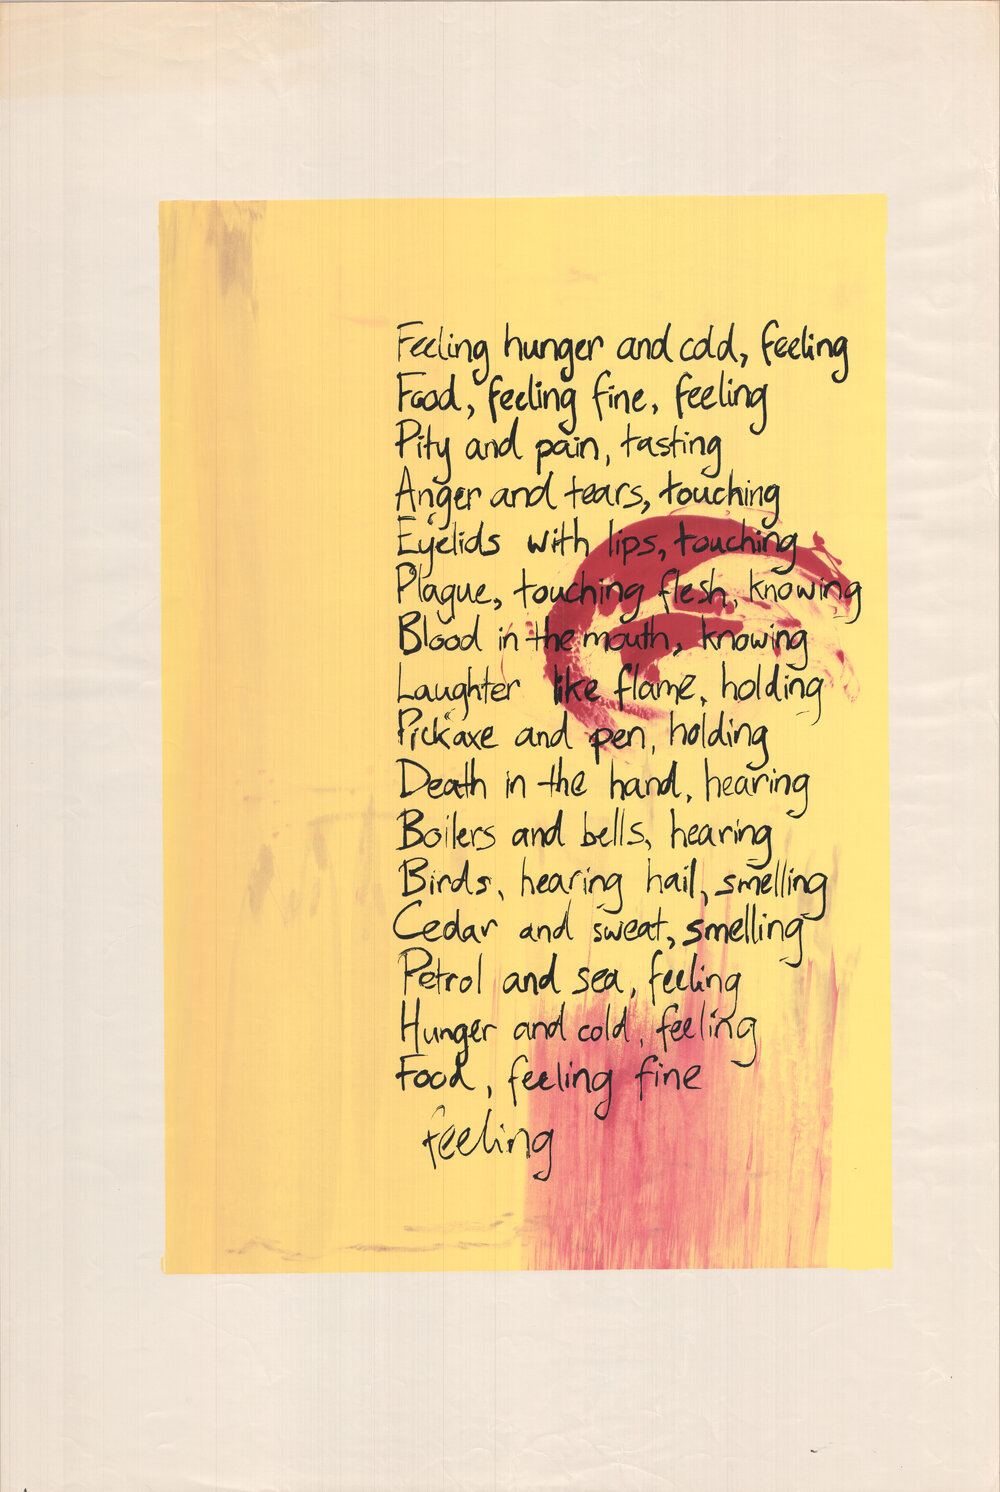 Feeling hunger and cold, feeling
Food, feeling fine, feeling
Pity and pain, tasting
Anger and tears, touching
Eyelids with lips, touching
Plague, touching flesh, knowing
Blood in the mouth, knowing
Laughter like flame, holding
Pickaxe and pen, holding
Death in the hand, hearing
Boilers and bells, hearing
Birds, hearing hail, smelling
Cedar and sweat, smelling
Petrol and sea, feeling
Hunger and cold, feeling
Food, feeling fine
feeling